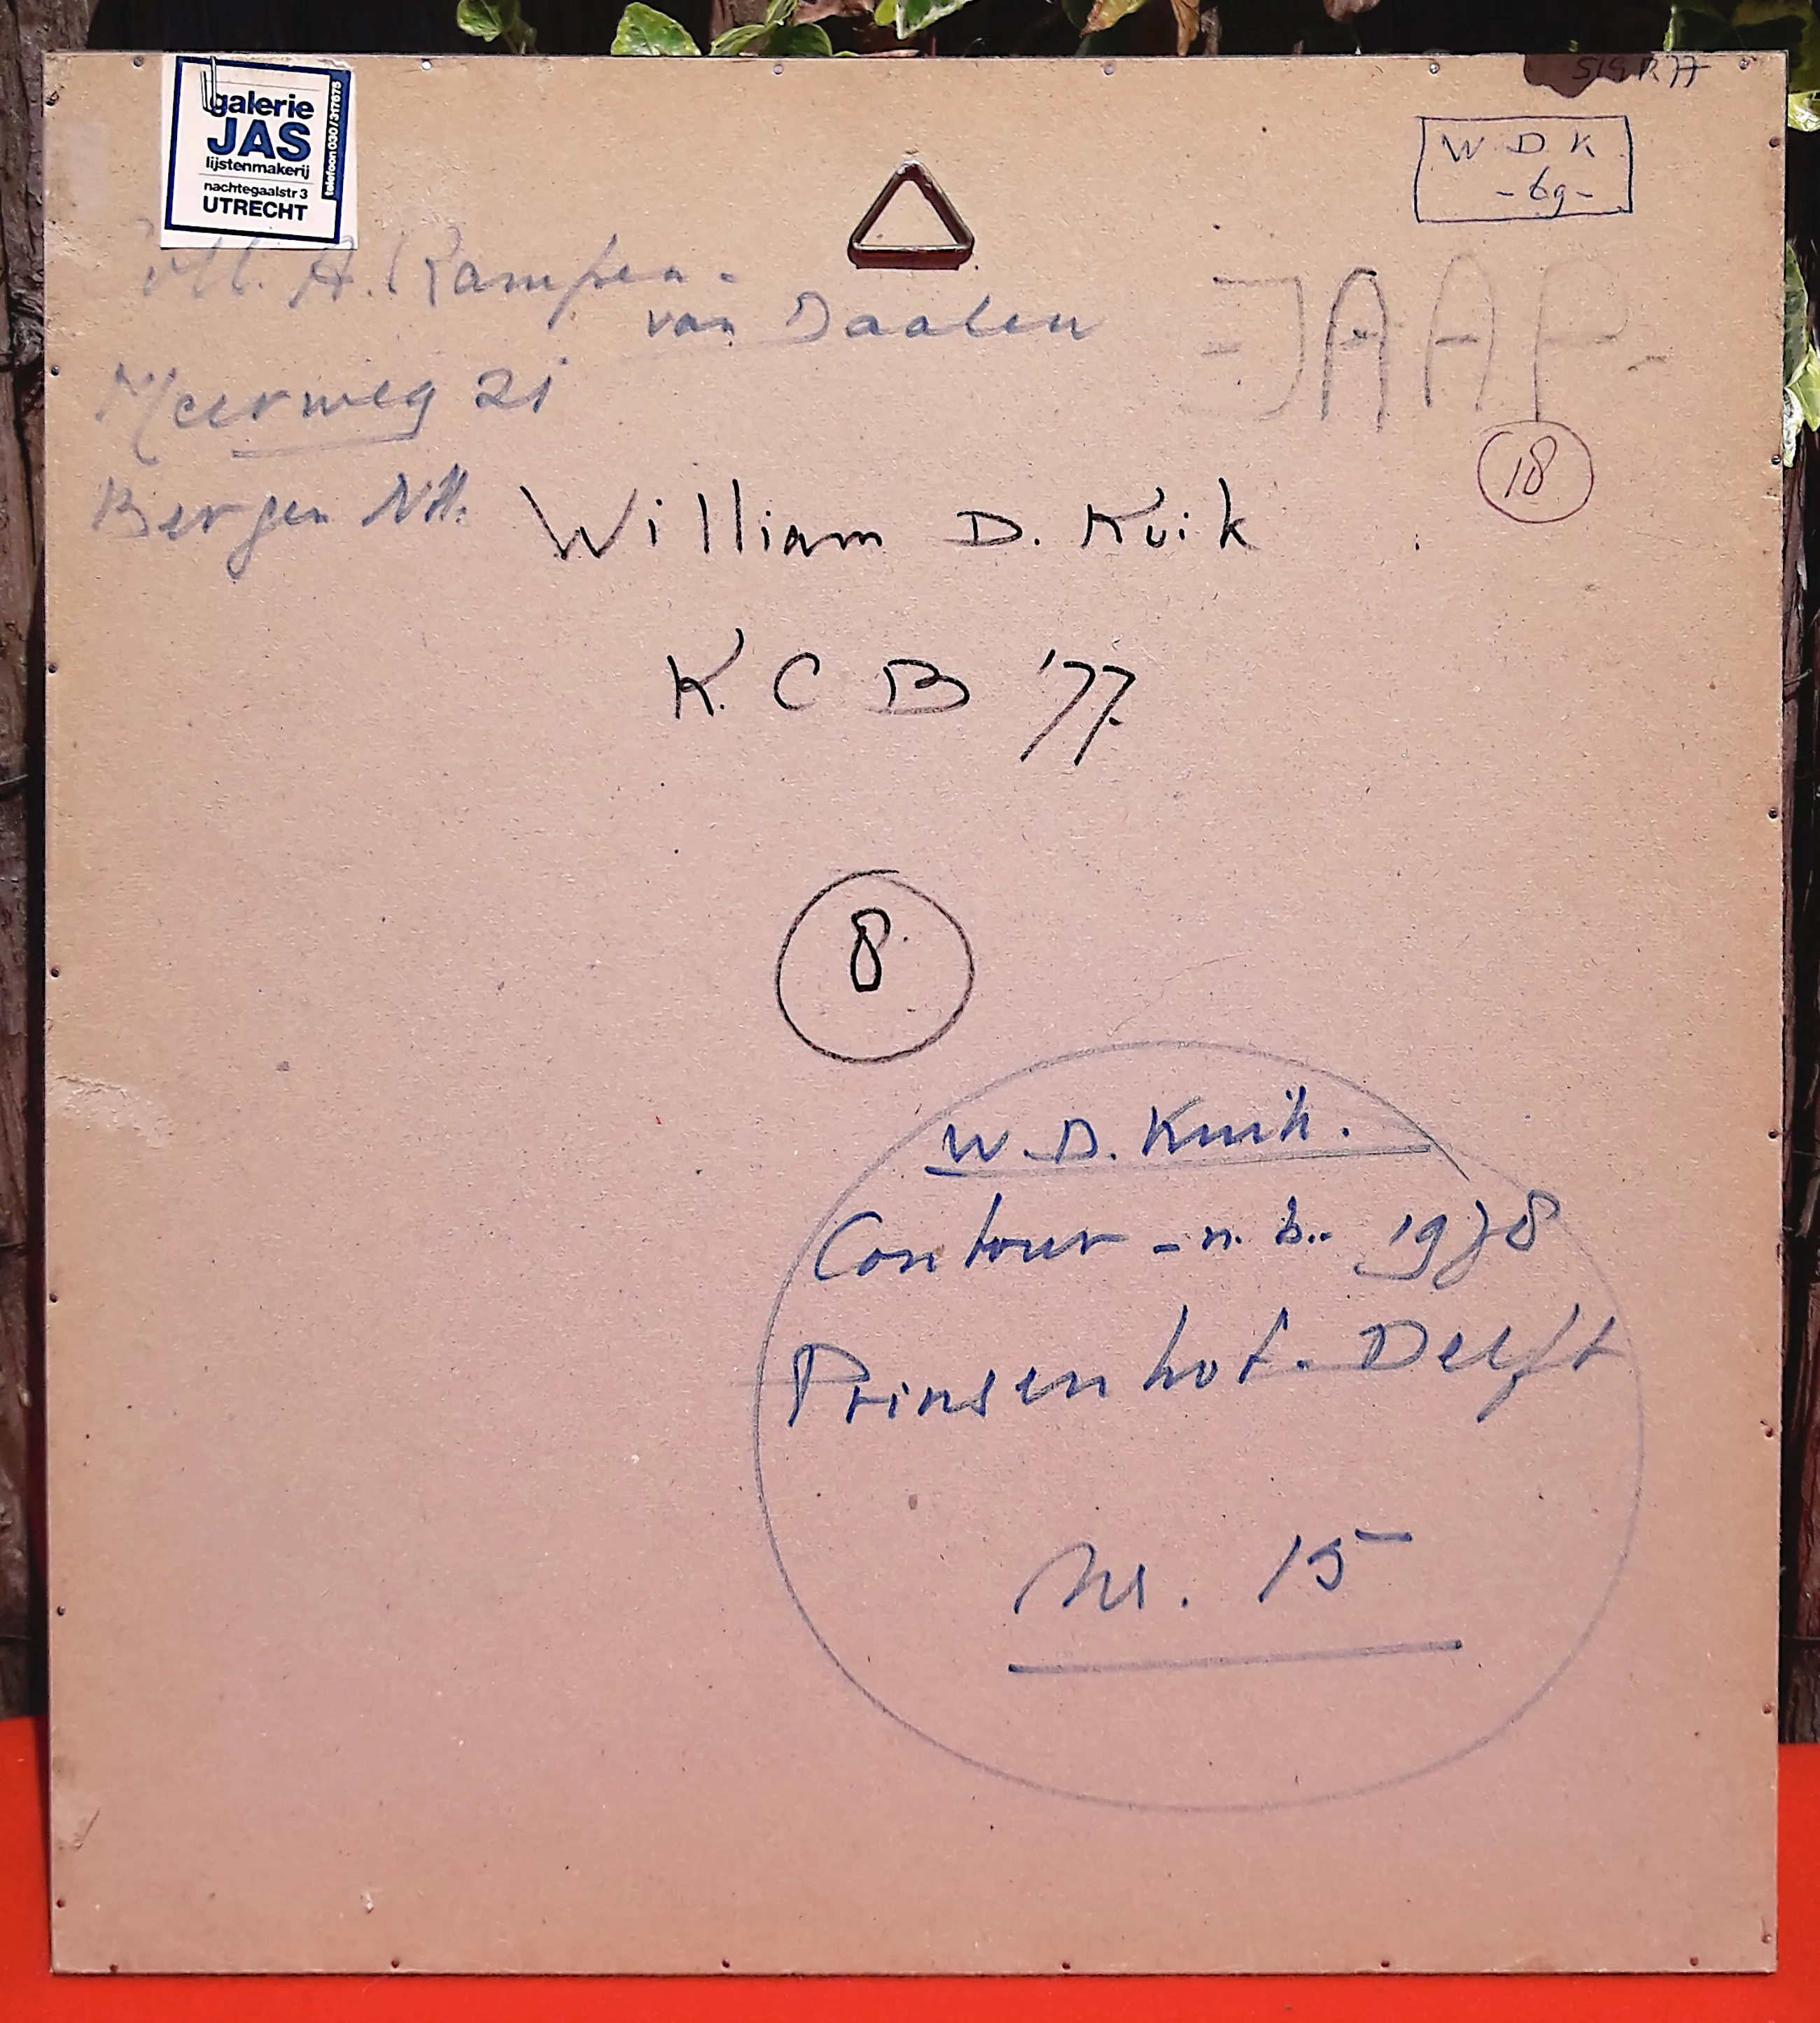 galerie
JAS
lijstenmakerij
nachtegaalstr 3
UTRECHT
telefoon 030/317675
W D K
-69-
A. Kampen-
van Daalen
Meerweg 21
Bergen NH.
JAAP-
18
William D. Kuik
K. C B '77.
8
W. D. Kuik.
Contour - n. b.. 1978
Prinsenhof. Delft
Nr. 15